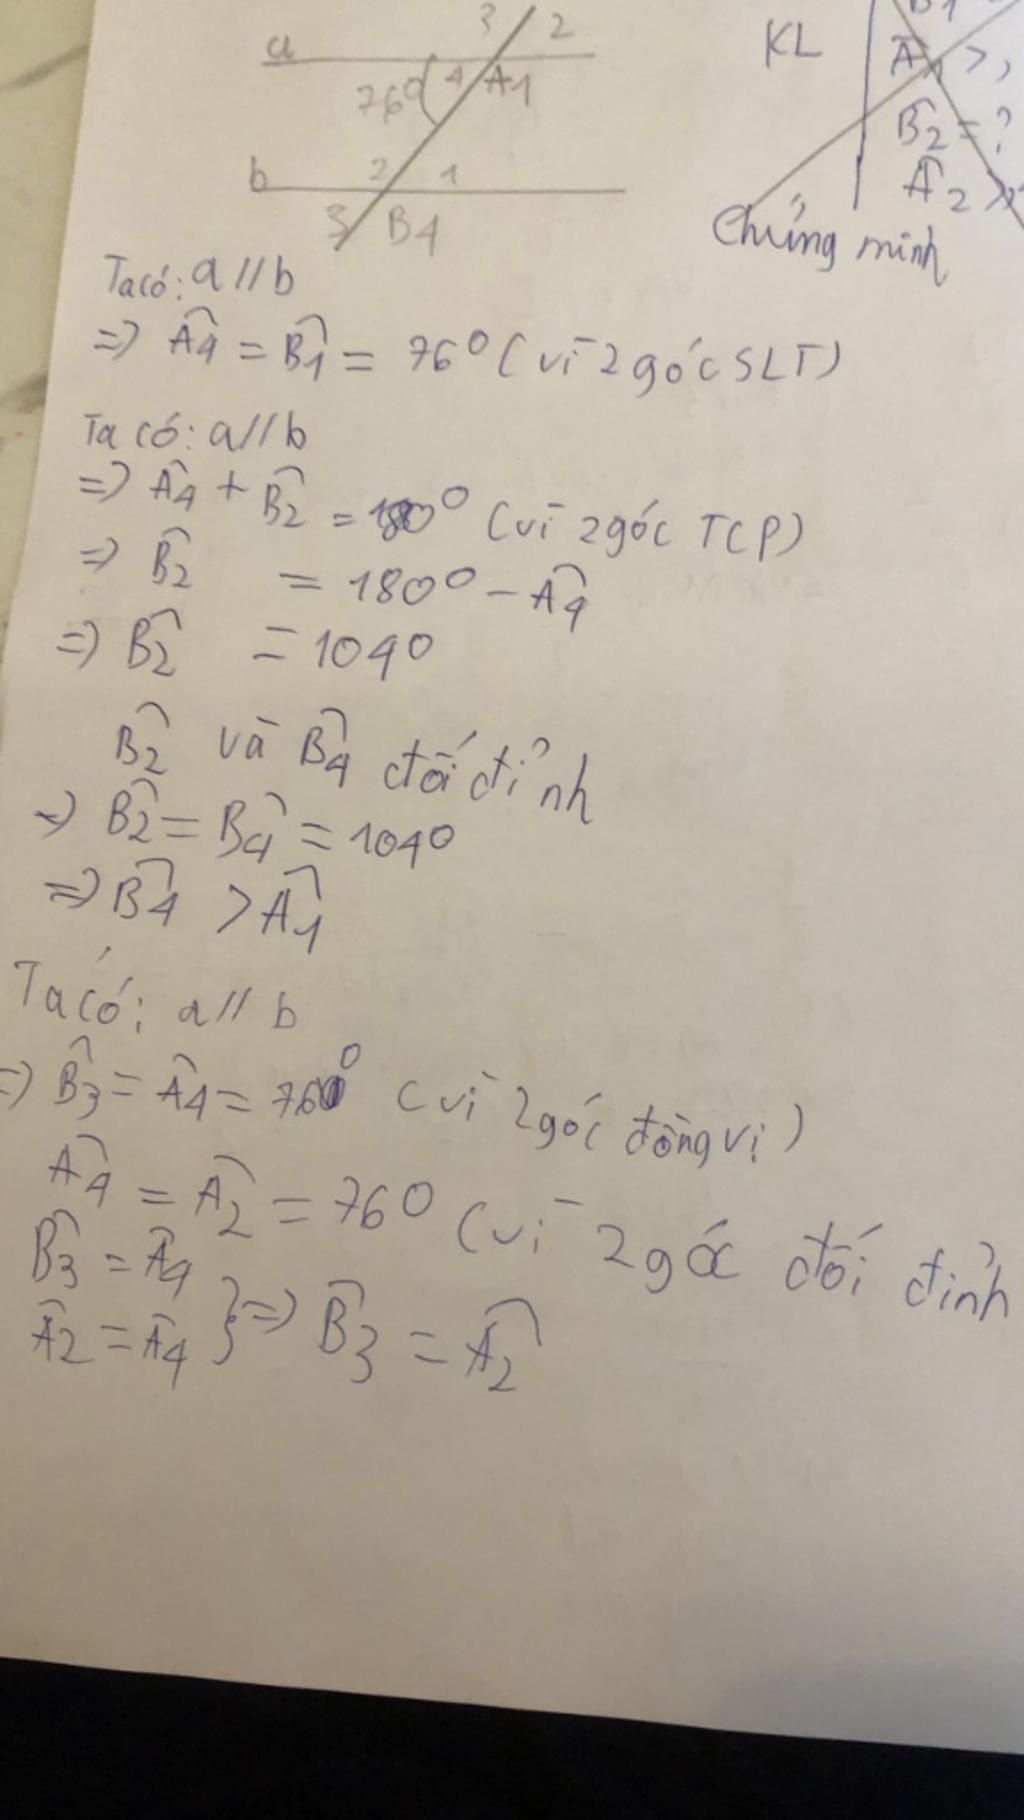 a
3 2
76° 4 A1
b 2 1
3 B4
KL
B1
A1 >,
B2 = ?
A2
Chứng minh
Ta có: a // b
=> Â4 = B̂1 = 76° (vì 2 góc SLT)
Ta có: a // b
=> Â4 + B̂2 = 180° (vì 2 góc TCP)
=> B̂2 = 180° - Â4
=> B̂2 = 104°
B̂2 và B̂4 đối đỉnh
=> B̂2 = B̂4 = 104°
=> B̂4 > Â1
Ta có: a // b
=> B̂3 = Â4 = 76° (vì 2 góc đồng vị)
Â4 = Â2 = 76° (vì 2 góc đối đỉnh
B̂3 = Â4
Â2 = Â4 } => B̂3 = Â2